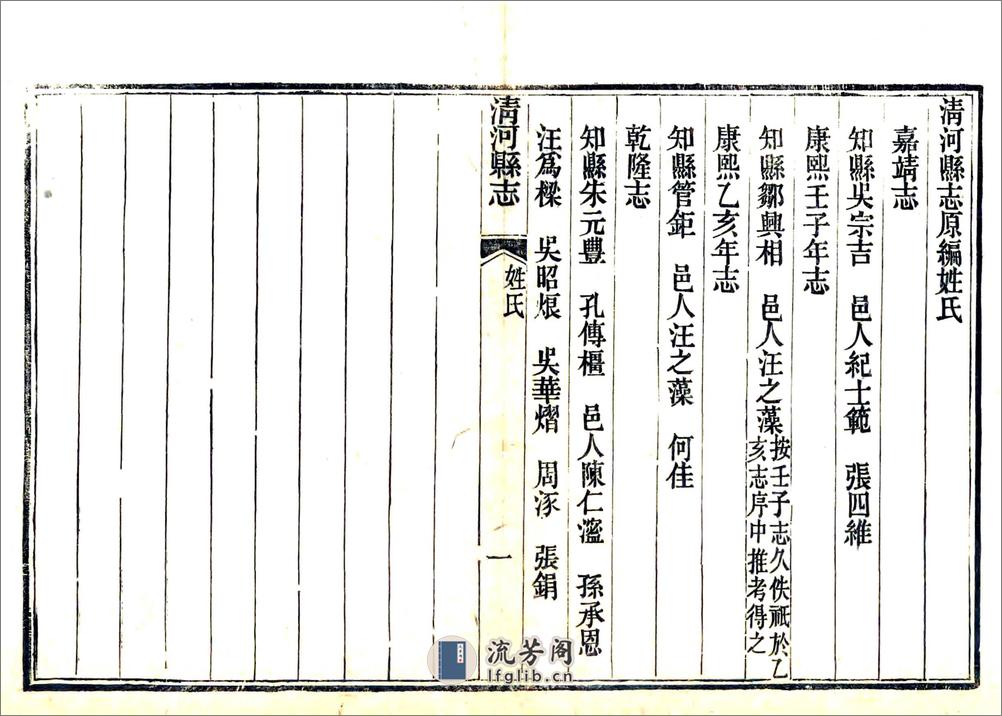 清河縣志原編姓氏
嘉靖志
知縣吳宗吉　邑人紀士範　張四維
康熙壬子年志
知縣鄒興相　邑人汪之藻按壬子志久佚祇於乙
亥志序中推考得之
康熙乙亥年志
知縣管鉅　邑人汪之藻　何佳
乾隆志
知縣朱元豐　孔傳橿　邑人陳仁灐　孫承恩
汪爲樑　吳昭烺　吳華熠　周涿　張鋗
清河縣志　姓氏　一
流芳阁
lfglib.cn